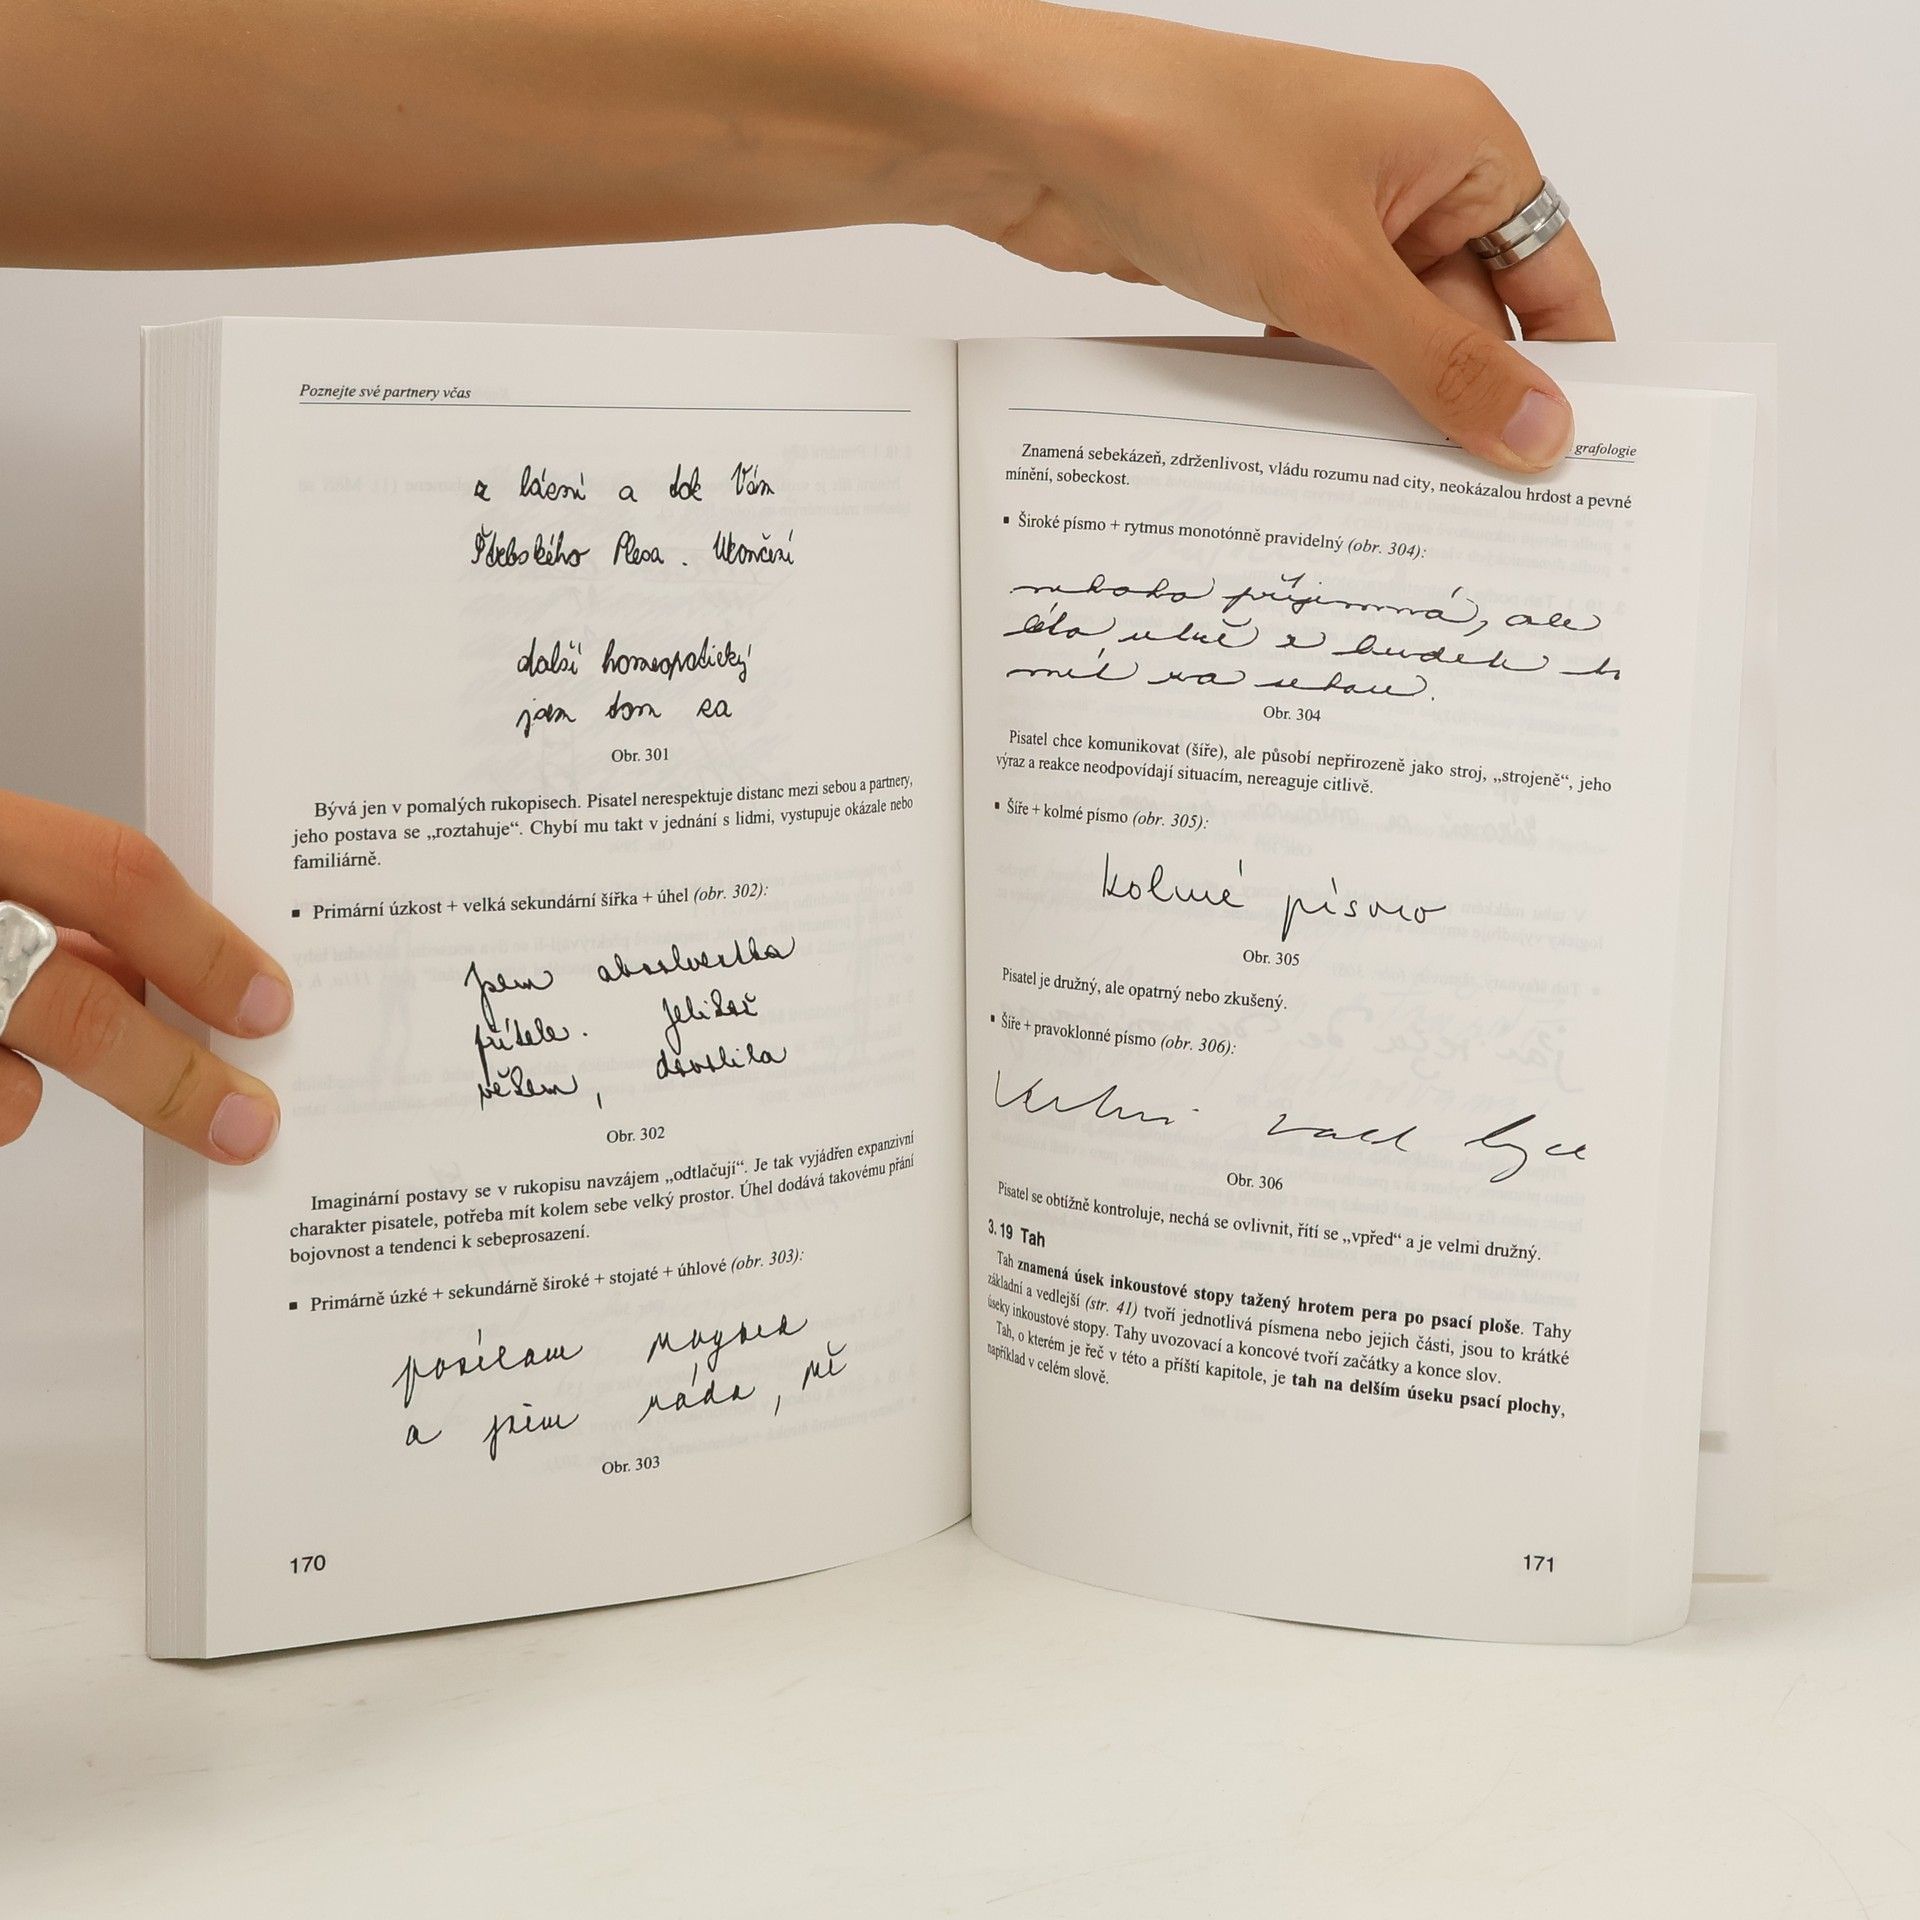 Poznejte své partnery včas
z lázní a tak Vám
Štrbského Plesa. Ukončení
další homeopatický
jsem tam za
Obr. 301
Bývá jen v pomalých rukopisech. Pisatel nerespektuje distanc mezi sebou a partnery,
jeho postava se „roztahuje“. Chybí mu takt v jednání s lidmi, vystupuje okázale nebo
familiárně.
▪ Primární úzkost + velká sekundární šířka + úhel (obr. 302):
Jsem absolventka
přítele. Jelikož
věkem, dovolila
Obr. 302
Imaginární postavy se v rukopisu navzájem „odtlačují“. Je tak vyjádřen expanzivní
charakter pisatele, potřeba mít kolem sebe velký prostor. Úhel dodává takovému přání
bojovnost a tendenci k sebeprosazení.
▪ Primárně úzké + sekundárně široké + stojaté + úhlové (obr. 303):
posílam
a jsem ráda, ně
Obr. 303
170
grafologie
Znamená sebekázeň, zdrženlivost, vládu rozumu nad city, neokázalou hrdost a pevné
mínění, sobeckost.
▪ Široké písmo + rytmus monotónně pravidelný (obr. 304):
příjemná, ale
léta z budek
mít za sebou.
Obr. 304
Pisatel chce komunikovat (šíře), ale působí nepřirozeně jako stroj, „strojeně“, jeho
výraz a reakce neodpovídají situacím, nereaguje citlivě.
▪ Šíře + kolmé písmo (obr. 305):
kolmé písmo
Obr. 305
Pisatel je družný, ale opatrný nebo zkušený.
▪ Šíře + pravoklonné písmo (obr. 306):
Obr. 306
Pisatel se obtížně kontroluje, nechá se ovlivnit, řítí se „vpřed“ a je velmi družný.
3.19 Tah
Tah znamená úsek inkoustové stopy tažený hrotem pera po psací ploše. Tahy
základní a vedlejší (str. 41) tvoří jednotlivá písmena nebo jejich části, jsou to krátké
úseky inkoustové stopy. Tahy uvozovací a koncové tvoří začátky a konce slov.
Tah, o kterém je řeč v této a příští kapitole, je tah na delším úseku psací plochy,
například v celém slově.
171